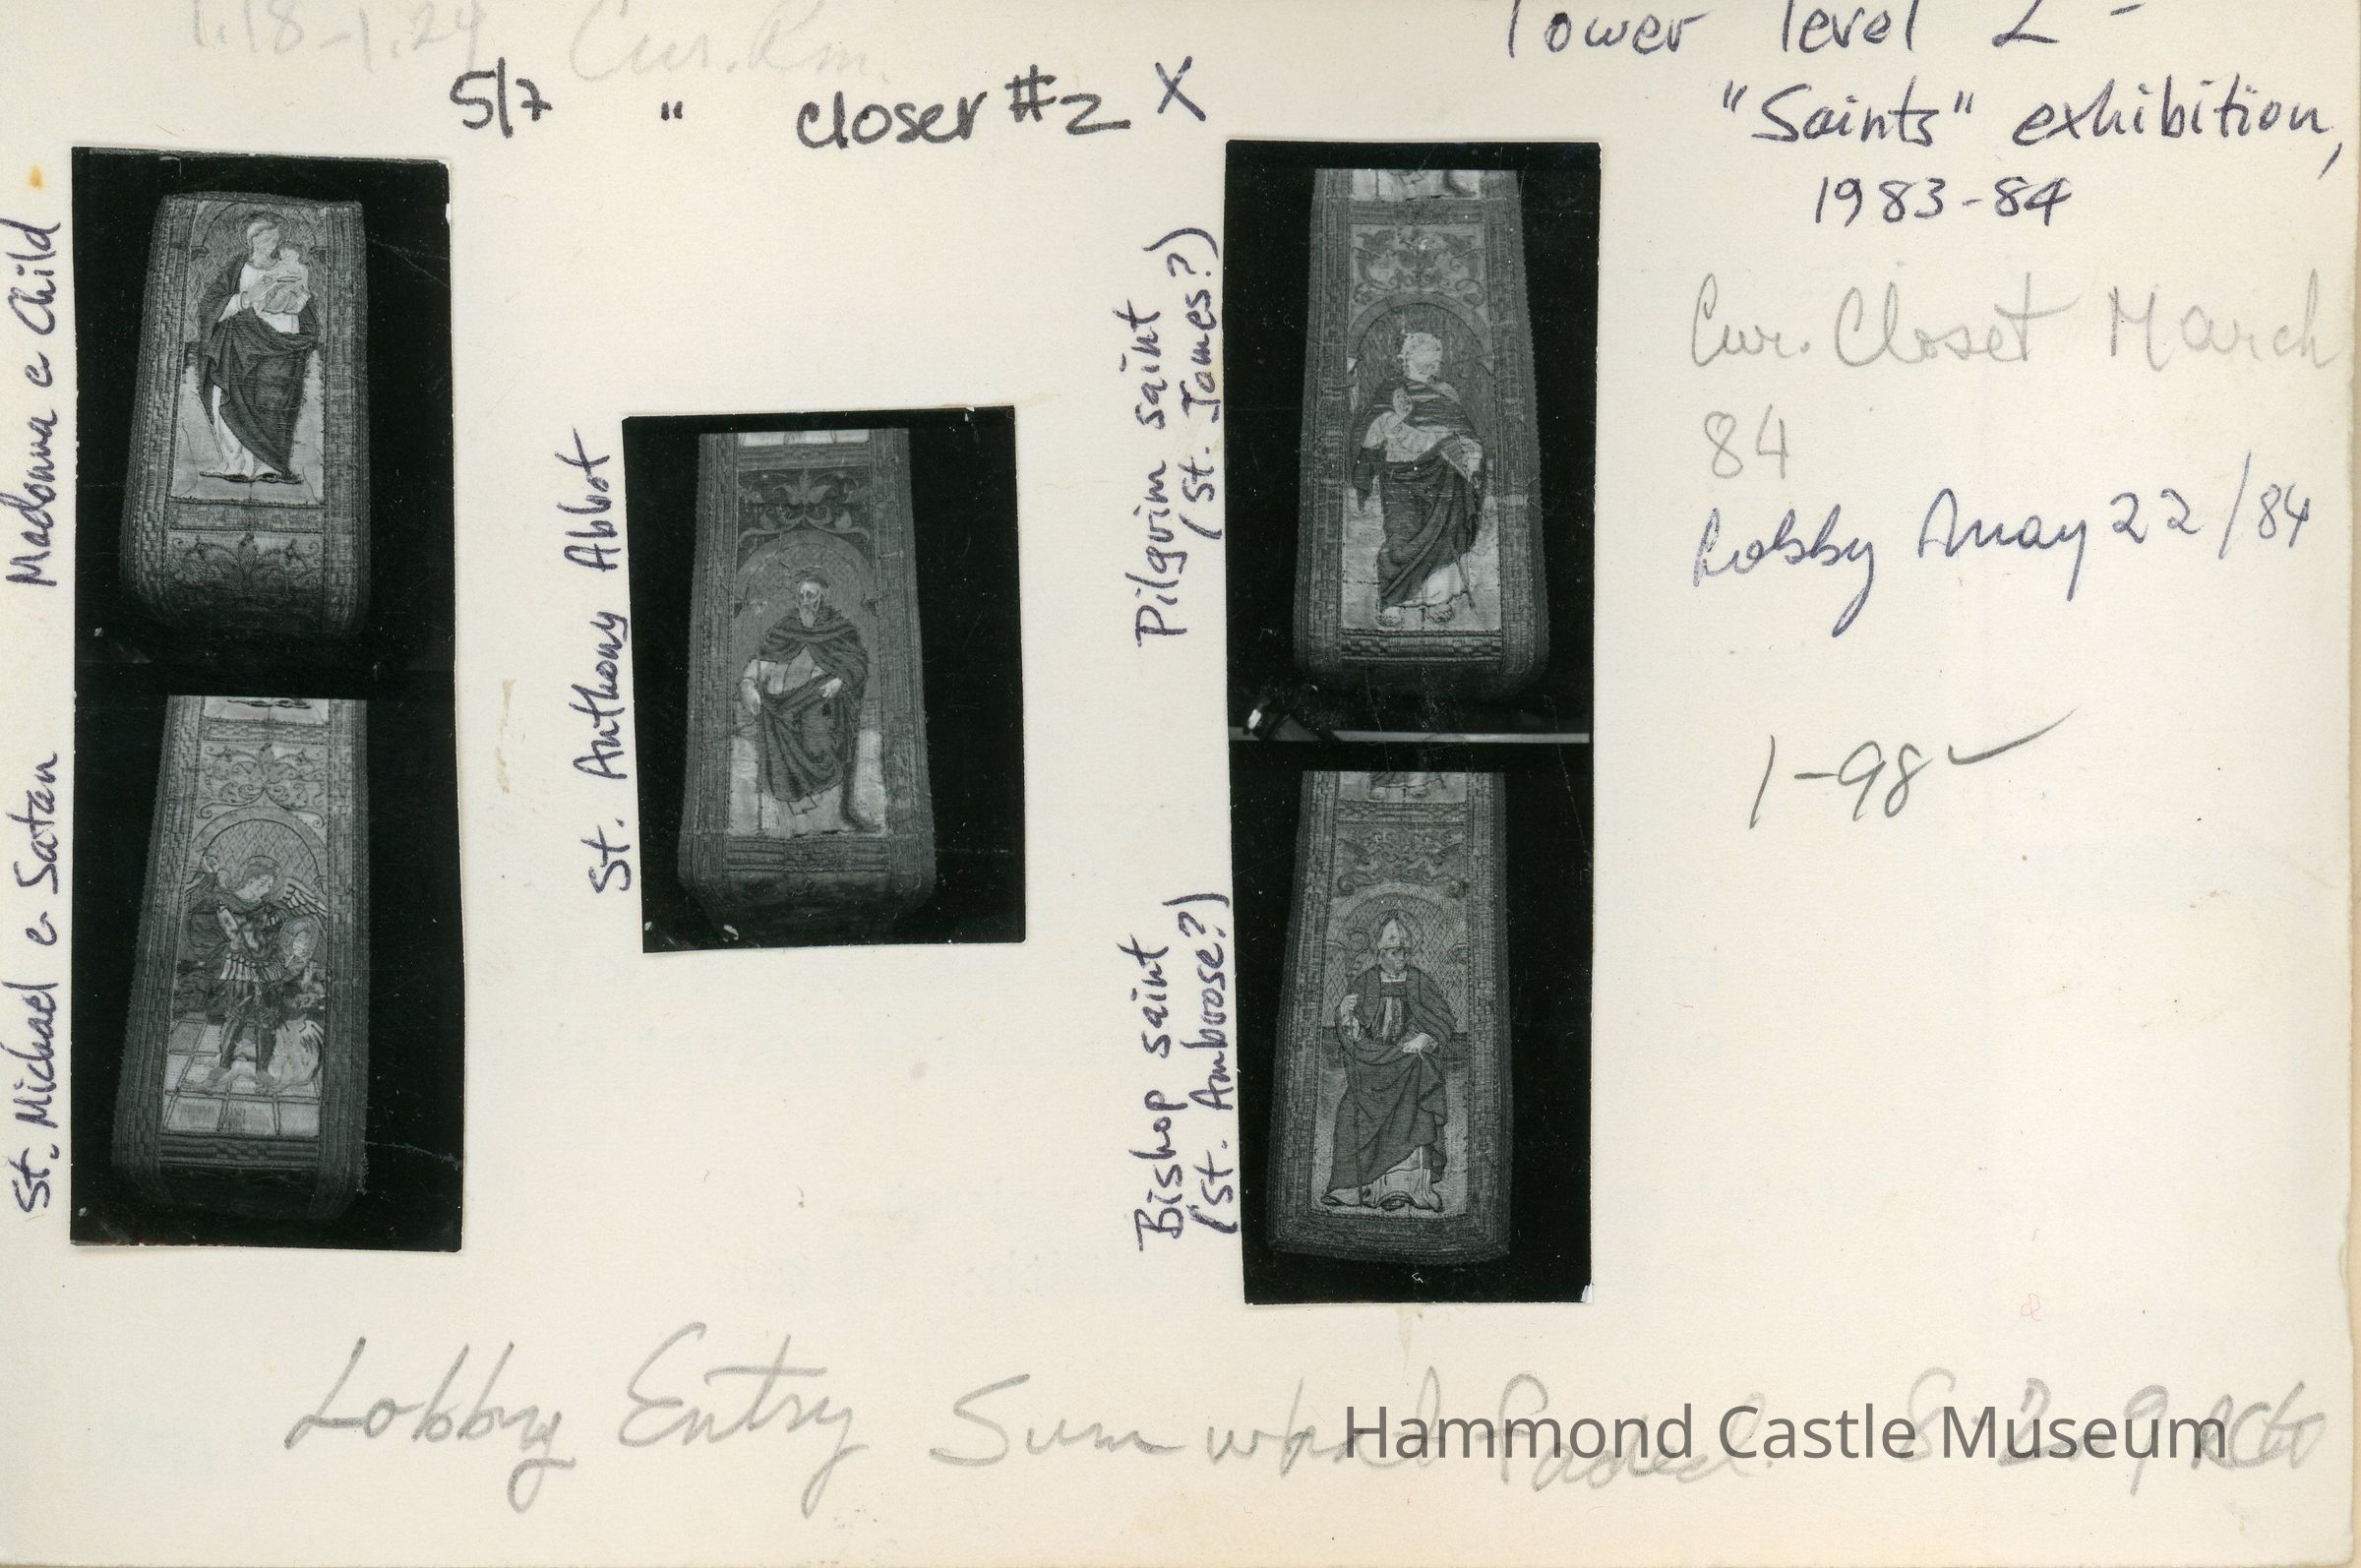 1.18-1.24 Cur. Rm.
5/7 " closer #2 X
Tower level 2 -
"Saints" exhibition,
1983-84
Cur. Closet March
84
Lobby May 22/84
1-98 ✓
Madonna c Child
St. Michael c Satan
St. Anthony Abbot
Pilgrim saint
(St. James?)
Bishop saint
(St. Ambrose?)
Lobby Entry Sumwhat faded.
Hammond Castle Museum